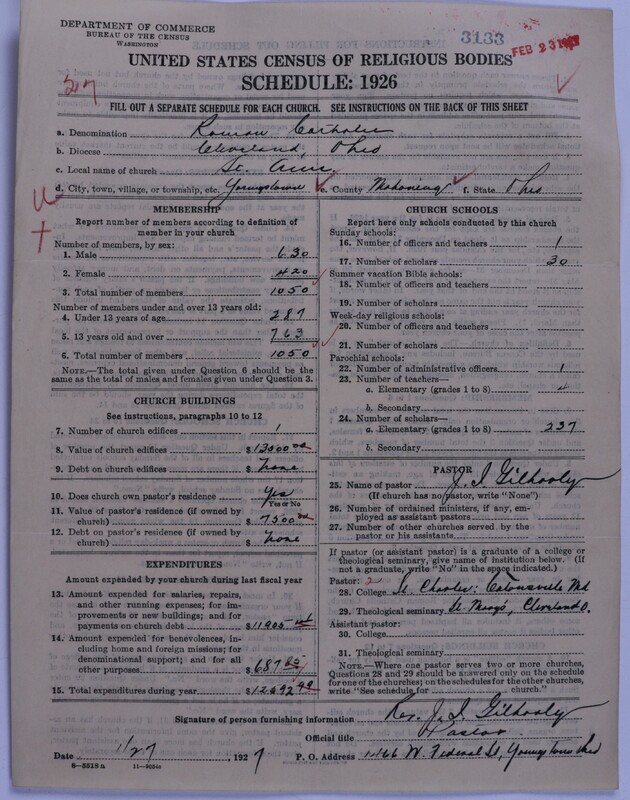 DEPARTMENT OF COMMERCE
BUREAU OF THE CENSUS
WASHINGTON
3133
FEB 23 1927
UNITED STATES CENSUS OF RELIGIOUS BODIES
SCHEDULE: 1926
27
FILL OUT A SEPARATE SCHEDULE FOR EACH CHURCH. SEE INSTRUCTIONS ON THE BACK OF THIS SHEET
a. Denomination Roman Catholic
b. Diocese Cleveland, Ohio
c. Local name of church St. Ann
d. City, town, village, or township, etc. Youngstown e. County Mahoning f. State Ohio
MEMBERSHIP
Report number of members according to definition of member in your church
Number of members, by sex:
1. Male 630
2. Female 420
3. Total number of members 1050
Number of members under and over 13 years old:
4. Under 13 years of age 287
5. 13 years old and over 763
6. Total number of members 1050
NOTE.—The total given under Question 6 should be the same as the total of males and females given under Question 3.
CHURCH BUILDINGS
See instructions, paragraphs 10 to 12
7. Number of church edifices 1
8. Value of church edifices $ 13000 00
9. Debt on church edifices $ None
10. Does church own pastor's residence Yes
Yes or No
11. Value of pastor's residence (if owned by church) $ 7500 00
12. Debt on pastor's residence (if owned by church) $ None
EXPENDITURES
Amount expended by your church during last fiscal year
13. Amount expended for salaries, repairs, and other running expenses; for improvements or new buildings; and for payments on church debt $ 11905
14. Amount expended for benevolences, including home and foreign missions; for denominational support; and for all other purposes $ 687
15. Total expenditures during year $
CHURCH SCHOOLS
Report here only schools conducted by this church
Sunday schools:
16. Number of officers and teachers 1
17. Number of scholars 30
Summer vacation Bible schools:
18. Number of officers and teachers
19. Number of scholars
Week-day religious schools:
20. Number of officers and teachers
21. Number of scholars
Parochial schools:
22. Number of administrative officers 1
23. Number of teachers—
a. Elementary (grades 1 to 8) 4
b. Secondary
24. Number of scholars—
a. Elementary (grades 1 to 8) 237
b. Secondary
PASTOR
25. Name of pastor J. I. Gilhooly
(If church has no pastor, write "None")
26. Number of ordained ministers, if any, employed as assistant pastors
27. Number of other churches served by the pastor or his assistants
If pastor (or assistant pastor) is a graduate of a college or theological seminary, give name of institution below. (If not a graduate, write "No" in the space indicated.)
Pastor: 2
28. College St. Charles; Catonsville Md
29. Theological seminary St. Mary's, Cleveland O.
Assistant pastor:
30. College
31. Theological seminary
NOTE.—Where one pastor serves two or more churches, Questions 28 and 29 should be answered only on the schedule for one of the churches; on the schedules for the other churches, write "See schedule for church."
Signature of person furnishing information Rev. J. I. Gilhooly
Official title Pastor
Date 1/27, 1927 P. O. Address W. Federal St, Youngstown Ohio
8-5518 a